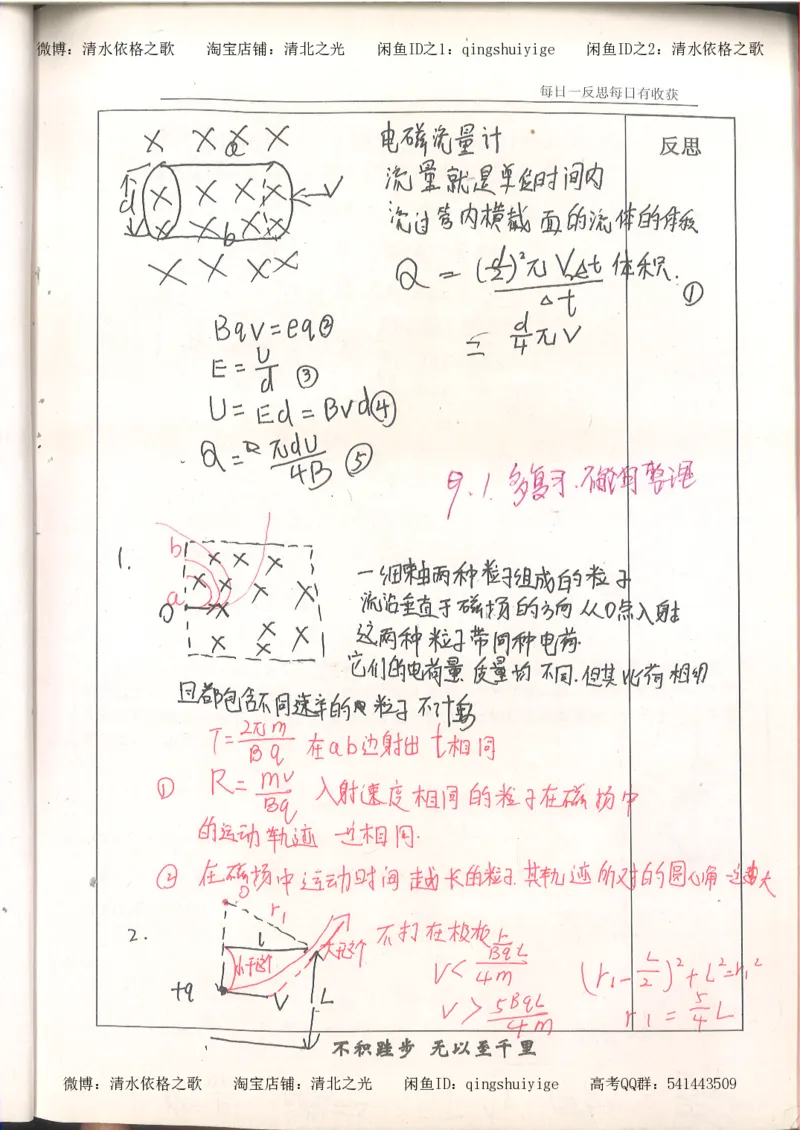 微博：清水依格之歌 淘宝店铺：清北之光 闲鱼ID之1：qingshuiyige 闲鱼ID之2：清水依格之歌
每日一反思每日有收获
反思
电磁流量计
流量就是单位时间内
流过管内横截面的流体的体积
Q = (d/2)²πV·Δt / Δt 体积. ①
= d/4 πV
× × × ×
a
d × × × × V
× × b × ×
× × × ×
Bqv = eq ②
E = U/d ③
U = Ed = Bvd ④
Q = πdU/4B ⑤
9.1. 多复习.
整理
1.
b
a
O
一细束由两种粒子组成的粒子
流沿垂直于磁场的方向从O点入射
这两种粒子带同种电荷.
它们的电荷量 质量均不同.但其比荷相同
且都包含不同速率的粒子 不计重
T = 2πm/Bq 在ab边射出 t相同
① R = mv/Bq 入射速度相同的粒子在磁场中
的运动轨迹 也相同.
② 在磁场中运动时间越长的粒子.其轨迹所对的圆心角一定越大
2.
O
r₁
l
小于这个
大于这个
+q
V
L
不打在极板上
V < BqL/4m
V > 5BqL/4m
(r₁ - L/2)² + L² = r₁²
r₁ = 5/4 L
不积跬步 无以至千里
微博：清水依格之歌 淘宝店铺：清北之光 闲鱼ID：qingshuiyige 高考QQ群：541443509